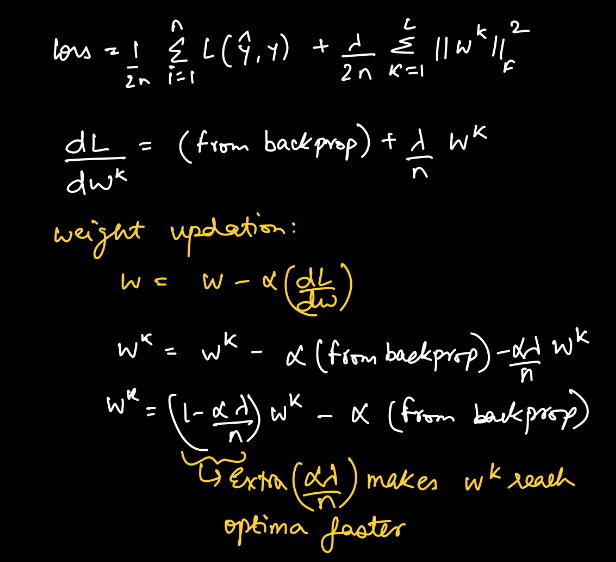 loss = 1/2n Σ_{i=1}^{n} L(ŷ, y) + λ/2n Σ_{K=1}^{L} ||w^k||_F^2
dL/dw^k = (from backprop) + λ/n w^k
weight updation:
w = w - α(dL/dw)
w^k = w^k - α (from backprop) - αλ/n w^k
w^k = (1 - αλ/n) w^k - α (from backprop)
↳ Extra (αλ/n) makes w^k reach
optima faster